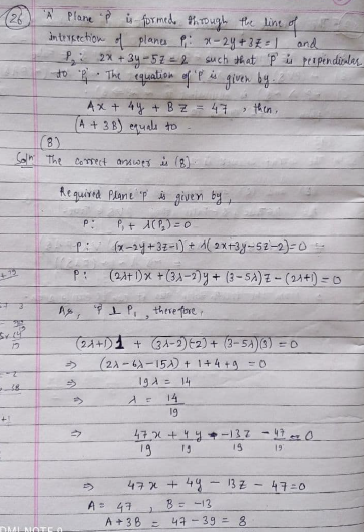 (26) 'A' Plane 'P' is formed through the line of
intersection of planes P₁: x-2y+3z=1 and
P₂: 2x+3y-5z=2 such that 'P' is perpendicular
to 'P₁'. The equation of 'P' is given by
Ax + 4y + Bz = 47, then,
(A + 3B) equals to
(8)
Soln The correct answer is (8)
Required Plane 'P' is given by,
P: P₁ + λ(P₂) = 0
P: (x-2y+3z-1) + λ(2x+3y-5z-2)=0
P: (2λ+1)x + (3λ-2)y + (3-5λ)z - (2λ+1) = 0
As, 'P' ⊥ P₁, therefore,
(2λ+1)1 + (3λ-2)(-2) + (3-5λ)(3) = 0
⇒ (2λ-6λ-15λ) + 1+4+9 = 0
⇒ 19λ = 14
⇒ λ = 14/19
⇒ 47x/19 + 4y/19 - 13z/19 - 47/19 = 0
⇒ 47x + 4y - 13z - 47 = 0
A = 47, B = -13
A+3B = 47-39 = 8